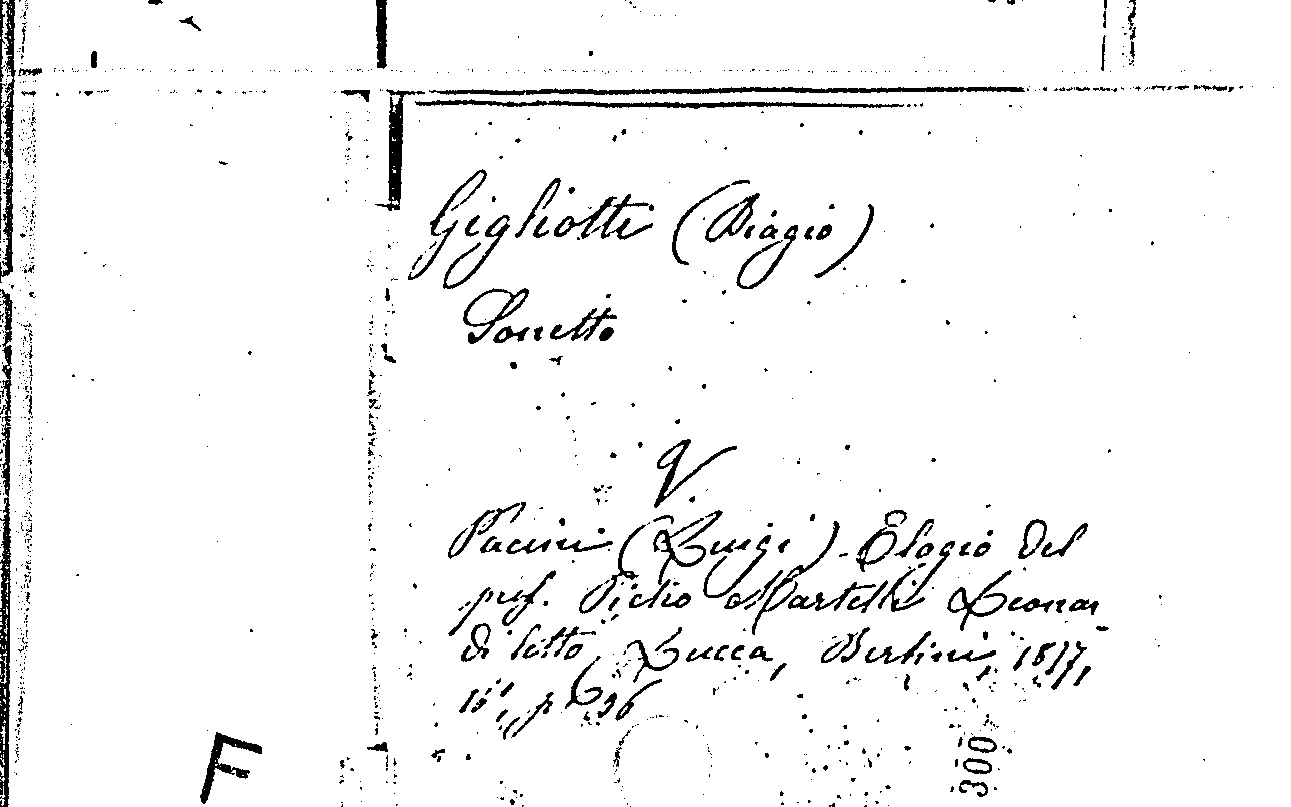 Gigliotti (Biagio)
Sonetto
V
Pacini (Luigi). Elogio del
prof. Pietro Martelli Leonar-
di letto, Lucca, Bertini, 1877,
16°, p. 36
F
300